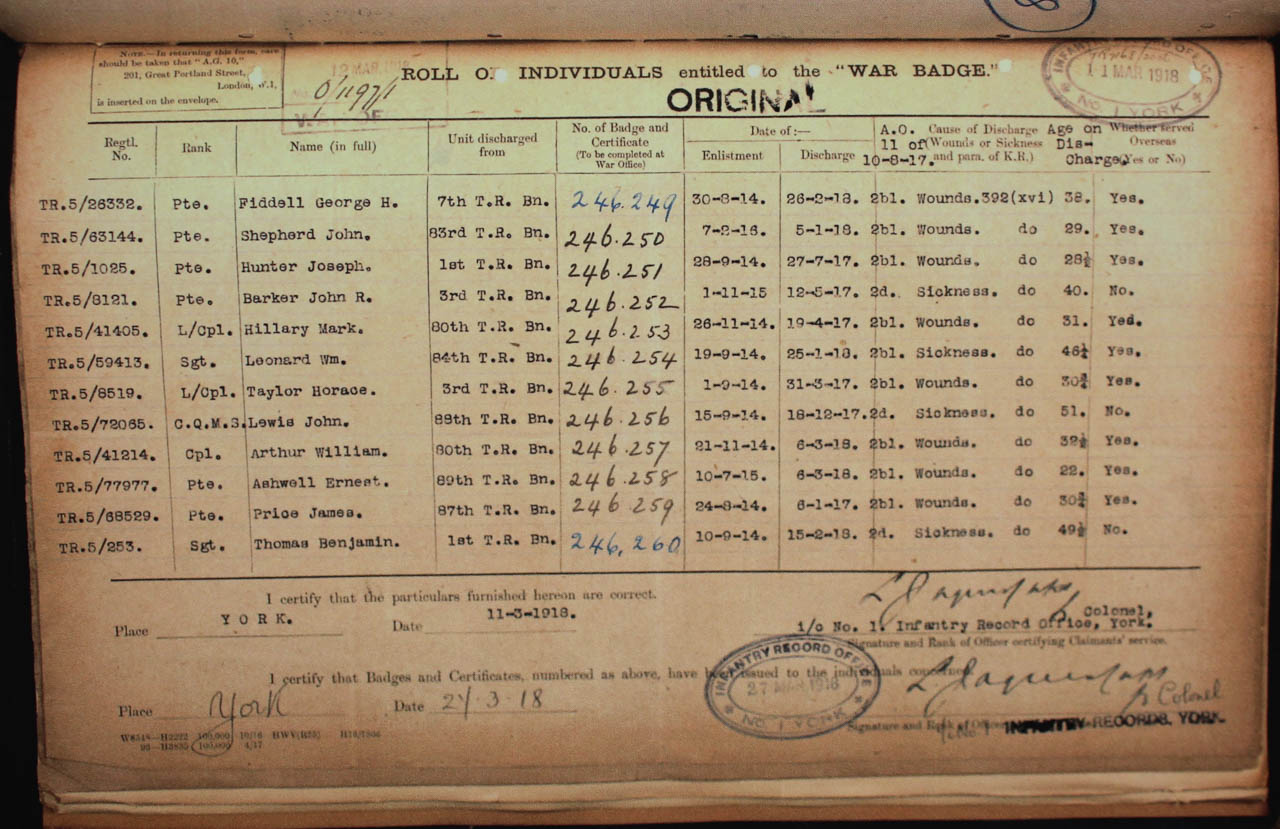 NOTE.—In returning this form, care
should be taken that "A.G. 10,"
201, Great Portland Street,
London, W.1,
is inserted on the envelope.
12 MAR 1918
O/1197/1
ROLL OF INDIVIDUALS entitled to the "WAR BADGE."
ORIGINAL
INFANTRY RECORD OFFICE
11 MAR 1918
NO. 1 YORK
Regtl. No. Rank Name (in full) Unit discharged from No. of Badge and Certificate (To be completed at War Office) Date of:— Enlistment Discharge A.O. 11 of 10-8-17. Cause of Discharge (Wounds or Sickness and para. of K.R.) Age on Dis-Charge. Whether served Overseas (Yes or No)
TR.5/26332. Pte. Fiddell George H. 7th T.R. Bn. 246.249 30-8-14. 26-2-18. 2b1. Wounds. 392(xvi) 38. Yes.
TR.5/63144. Pte. Shepherd John. 83rd T.R. Bn. 246.250 7-2-16. 5-1-18. 2b1. Wounds. do 29. Yes.
TR.5/1025. Pte. Hunter Joseph. 1st T.R. Bn. 246.251 28-9-14. 27-7-17. 2b1. Wounds. do 28½ Yes.
TR.5/8121. Pte. Barker John R. 3rd T.R. Bn. 246.252 1-11-15 12-5-17. 2d. Sickness. do 40. No.
TR.5/41405. L/Cpl. Hillary Mark. 80th T.R. Bn. 246.253 26-11-14. 19-4-17. 2b1. Wounds. do 31. Yes.
TR.5/59413. Sgt. Leonard Wm. 84th T.R. Bn. 246.254 19-9-14. 25-1-18. 2b1. Sickness. do 46½ Yes.
TR.5/8519. L/Cpl. Taylor Horace. 3rd T.R. Bn. 246.255 1-9-14. 31-3-17. 2b1. Wounds. do 30¾ Yes.
TR.5/72065. C.Q.M.S. Lewis John. 88th T.R. Bn. 246.256 15-9-14. 16-12-17. 2d. Sickness. do 51. No.
TR.5/41214. Cpl. Arthur William. 80th T.R. Bn. 246.257 21-11-14. 6-3-18. 2b1. Wounds. do 32½ Yes.
TR.5/77977. Pte. Ashwell Ernest. 89th T.R. Bn. 246.258 10-7-15. 6-3-18. 2b1. Wounds. do 22. Yes.
TR.5/68529. Pte. Price James. 87th T.R. Bn. 246 259 24-8-14. 6-1-17. 2b1. Wounds. do 30¾ Yes.
TR.5/253. Sgt. Thomas Benjamin. 1st T.R. Bn. 246,260 10-9-14. 15-2-18. 2d. Sickness. do 49½ No.
I certify that the particulars furnished hereon are correct.
Place YORK. Date 11-3-1918.
Colonel,
i/c No. 1. Infantry Record Office, York.
Signature and Rank of Officer certifying Claimants' service.
I certify that Badges and Certificates, numbered as above, have been issued to the individuals concerned
INFANTRY RECORD OFFICE
27 MAR 1918
NO. 1 YORK
Place York Date 27.3.18
Colonel
Signature and Rank of
INFANTRY RECORDS, YORK.
W8548—H2222 100,000 10/16 HWV(R35)
93—H3835 100,000 4/17